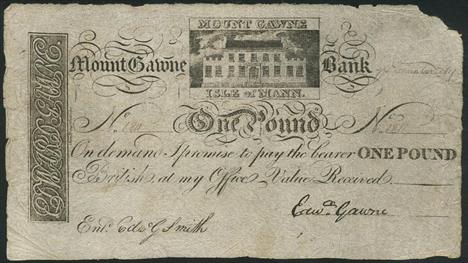 MOUNT GAWNE
Mount Gawne Bank
ISLE of MANN.
No. No.
One Pound
On demand I promise to pay the bearer ONE POUND
British at my Office Value Received
Edwd. Gawne
Entd. Edw G Smith